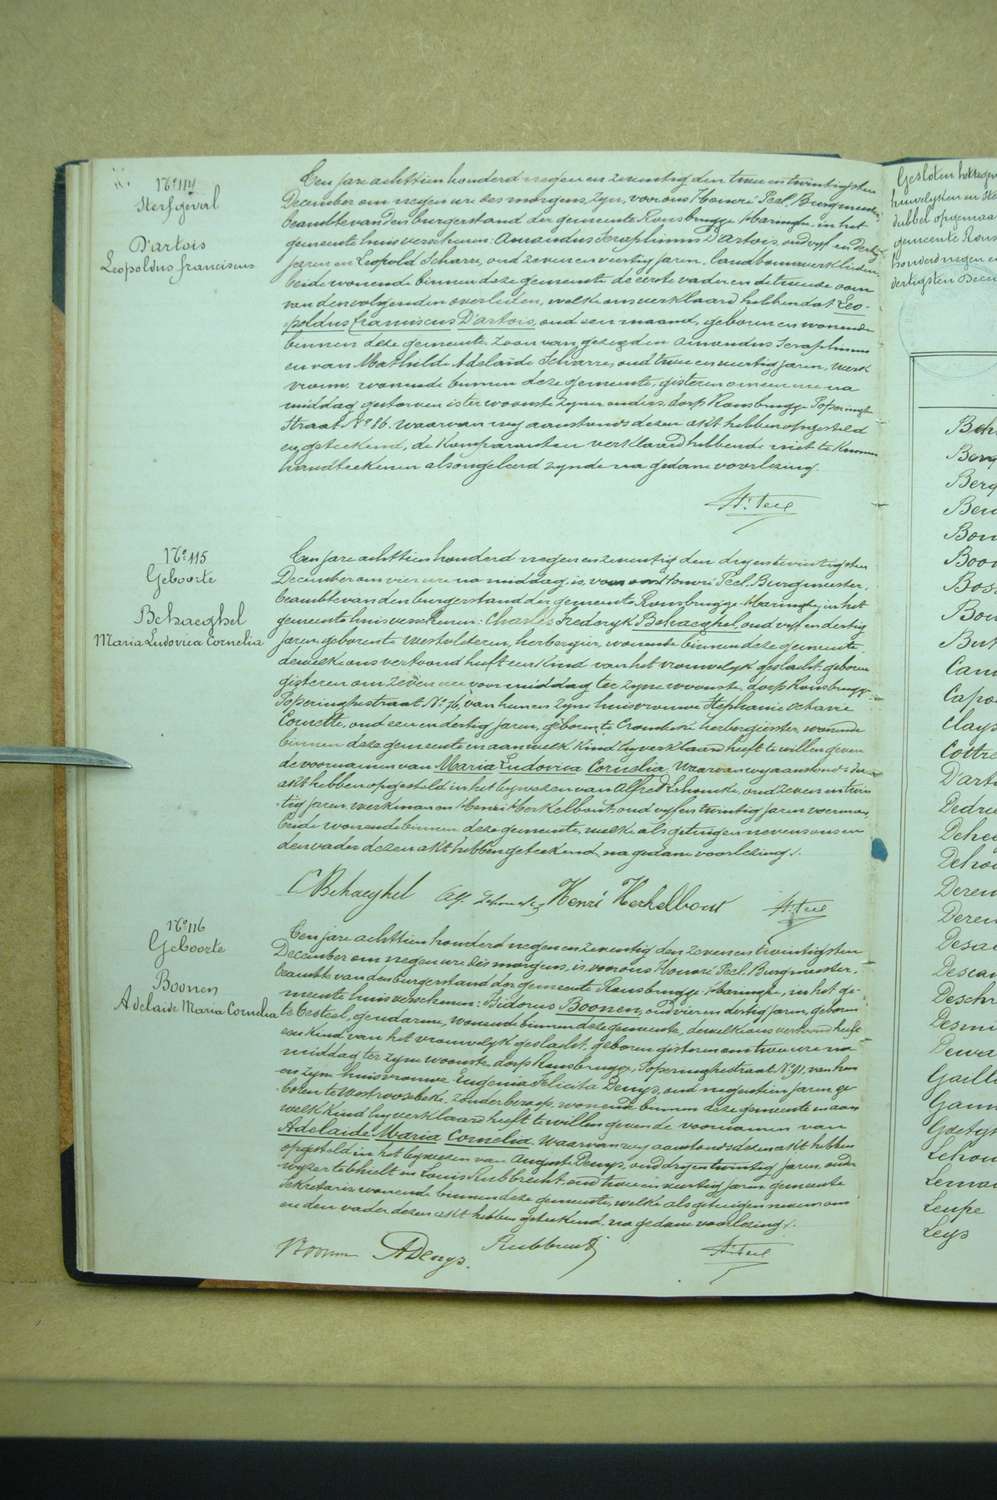 N° 114
Sterfgeval
D'artois
Leopoldus franciscus
Ten jare achttien honderd negen en zeventig den twee en twintigsten
December om negen ure des morgens, zyn, voor ons Honoré Peel, Burgmeester
beambte van den burgerstand der gemeente Rousbrugge-Haringhe, in het
gemeente huis verschenen: Amandus Seraphinus D'artois, oud vyf en dertig
jaren en Leopold Scharre, oud zeven en veertig jaren, landbouwwerklieden
beide wonende binnen deze gemeente de eerste vader en de tweede oom
van den volgenden overleden, welke ons verklaard hebben dat Leo-
poldus Franciscus D'artois, oud een maand, geboren en wonende
binnen deze gemeente, Zoon van gezegden Amandus Seraphinus
en van Mathilde Adelaïde Scharre, oud twee en veertig jaren, werk
vrouw wonende binnen deze gemeente, gisteren om een ure na
middag gestorven is ter woonste zyner ouders, dorp Rousbrugge Poperinghe
Straat N° 86. waarvan wy aanstonds dezen akt hebben opgesteld
en geteekend, de Komparanten verklaard hebbende niet te kunnen
handteekenen als ongeleerd zynde na gedane voorlezing.
H. Peel
N° 115
Geboorte
Behaeghel
Maria Ludovica Cornelia
Ten jare achttien honderd negen en zeventig den dry en twintigsten
December om vier ure na middag, is, voor ons Honoré Peel, Burgmeester,
beambte van den burgerstand der gemeente Rousbrugge-Haringhe, in het
gemeente huis verschenen: Charles Frederyk Behaeghel, oud vyf en dertig
jaren, geboren te Westvleteren, herbergier, wonende binnen deze gemeente,
dewelke ons vertoond heeft een Kind van het vrouwelyk geslacht, geboren
gisteren om zeven ure voor middag ter zyner woonste, dorp Rousbrugge
Poperinghestraat N° 76, van hem en zyne huisvrouw Stephanie Octavie
oud een en dertig jaren, geboren te Crombeke herbergierster, wonende
binnen deze gemeente en aan welk Kind hy verklaard heeft te willen geven
de voornamen van Maria Ludovica Cornelia. Waarvan wy aanstonds dezen
akt hebben opgesteld in het bywezen van Alfred oud zeven en twin
tig jaren, werkman en Henri Herkelbout, oud vyf en twintig jaren voerman,
beide wonende binnen deze gemeente, welke als getuigen nevens ons en
den vader dezen akt hebben geteekend, na gedane voorlezing.
C Behaeghel Alf. Henri Herkelbout H. Peel
N° 116
Geboorte
Boonen
Adelaide Maria Cornelia
Ten jare achttien honderd negen en zeventig den zeven en twintigsten
December om negen ure des morgens, is, voor ons Honoré Peel, Burgmeester,
beambte van den burgerstand der gemeente Rousbrugge-Haringhe, in het ge-
meente huis verschenen: Isidorus Boonen, oud vier en dertig jaren, geboren
te gendarm, wonende binnen deze gemeente, dewelke ons vertoond heeft
een Kind van het vrouwelyk geslacht, geboren gisteren om twee ure na
middag ter zyner woonste, dorp Rousbrugge, Poperinghestraat N° 91, van hem
en zyne huisvrouwe Eugenia Felicita Denys, oud negentien jaren ge
boren te Westroosbeke, Zonder beroep, wonende binnen deze gemeente en aan
welk Kind hy verklaard heeft te willen geven de voornamen van
Adelaide Maria Cornelia, Waarvan wy aanstonds dezen akt hebben
opgesteld in het bywezen van Auguste Denys, oud dry en twintig jaren, onder
wyzer te en Louis Rubbrecht, oud twee en veertig jaren gemeente
Sekretaris wonende binnen deze gemeente, welke als getuigen nevens ons
en den vader dezen akt hebben geteekend, na gedane voorlezing.
Boonen ADenys. Rubbrecht H. Peel
Gesloten
huwelyken en
dubbel opgemaa
gemeente Rous
honderd negen en
dertigsten Dece
Berg
Boos
Boss
Capo
Clays
Cottre
D'arto
Dedru
Dehou
Dehou
Deren
Deren
Desae
Deschr
Desmi
Dewa
Gaill
Lehou
Lema
Leupe
Leys